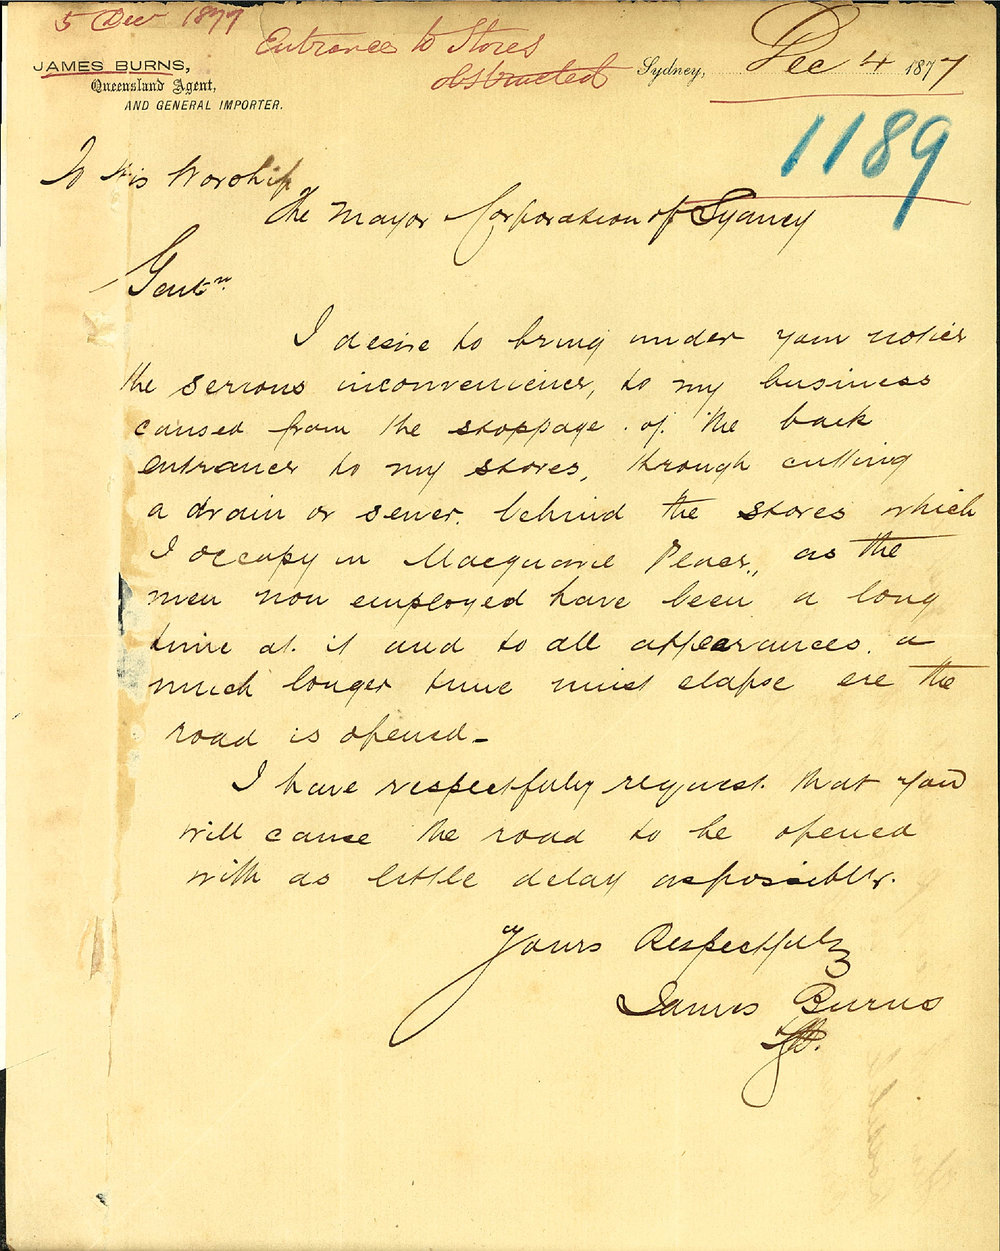 5 Dec 1877
Entrances to Stores
obstructed
JAMES BURNS,
Queensland Agent,
AND GENERAL IMPORTER.
Sydney, Dec 4 1877
1189
To His Worship
The Mayor Corporation of Sydney
Gentn
I desire to bring under your notice
the serious inconvenience, to my business
caused from the stoppage of the back
entrance to my stores, through cutting
a drain or sewer behind the stores which
I occupy in Macquarie Place, as the
men now employed have been a long
time at it and to all appearances a
much longer time must elapse ere the
road is opened_
I have respectfully request that you
will cause the road to be opened
with as little delay as possible.
Yours Respectfully
James Burns